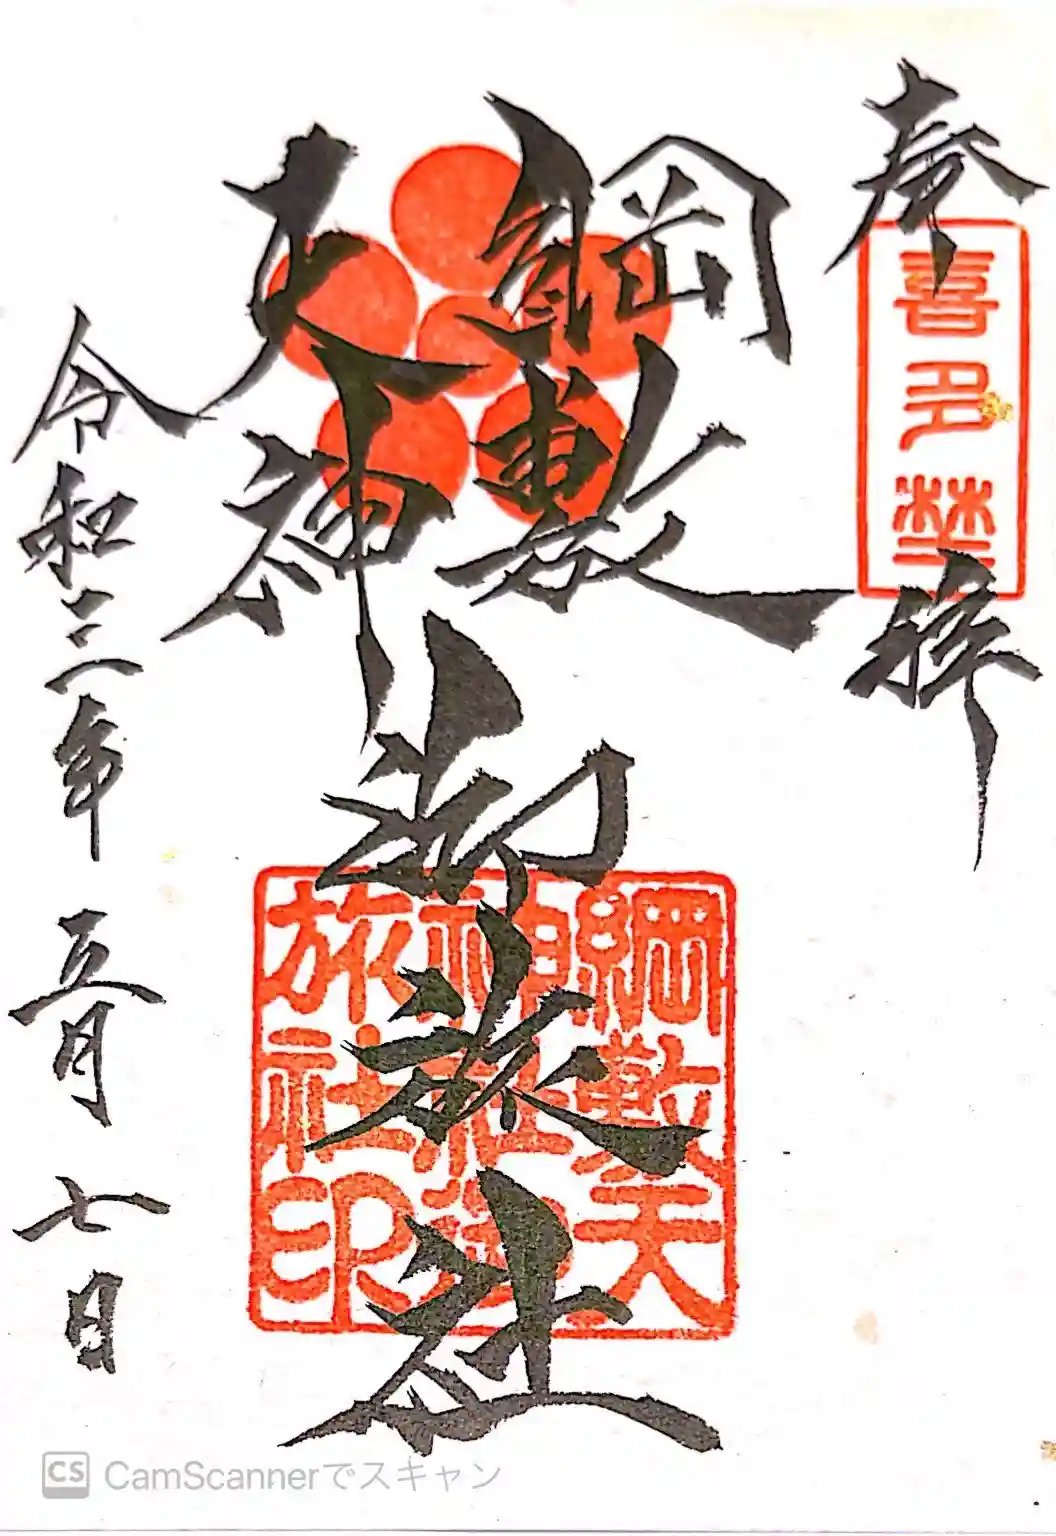 奉拝
喜多埜
綱敷
天神
御旅社
綱敷天
神社御
旅社印
令和三年五月七日
CS CamScannerでスキャン